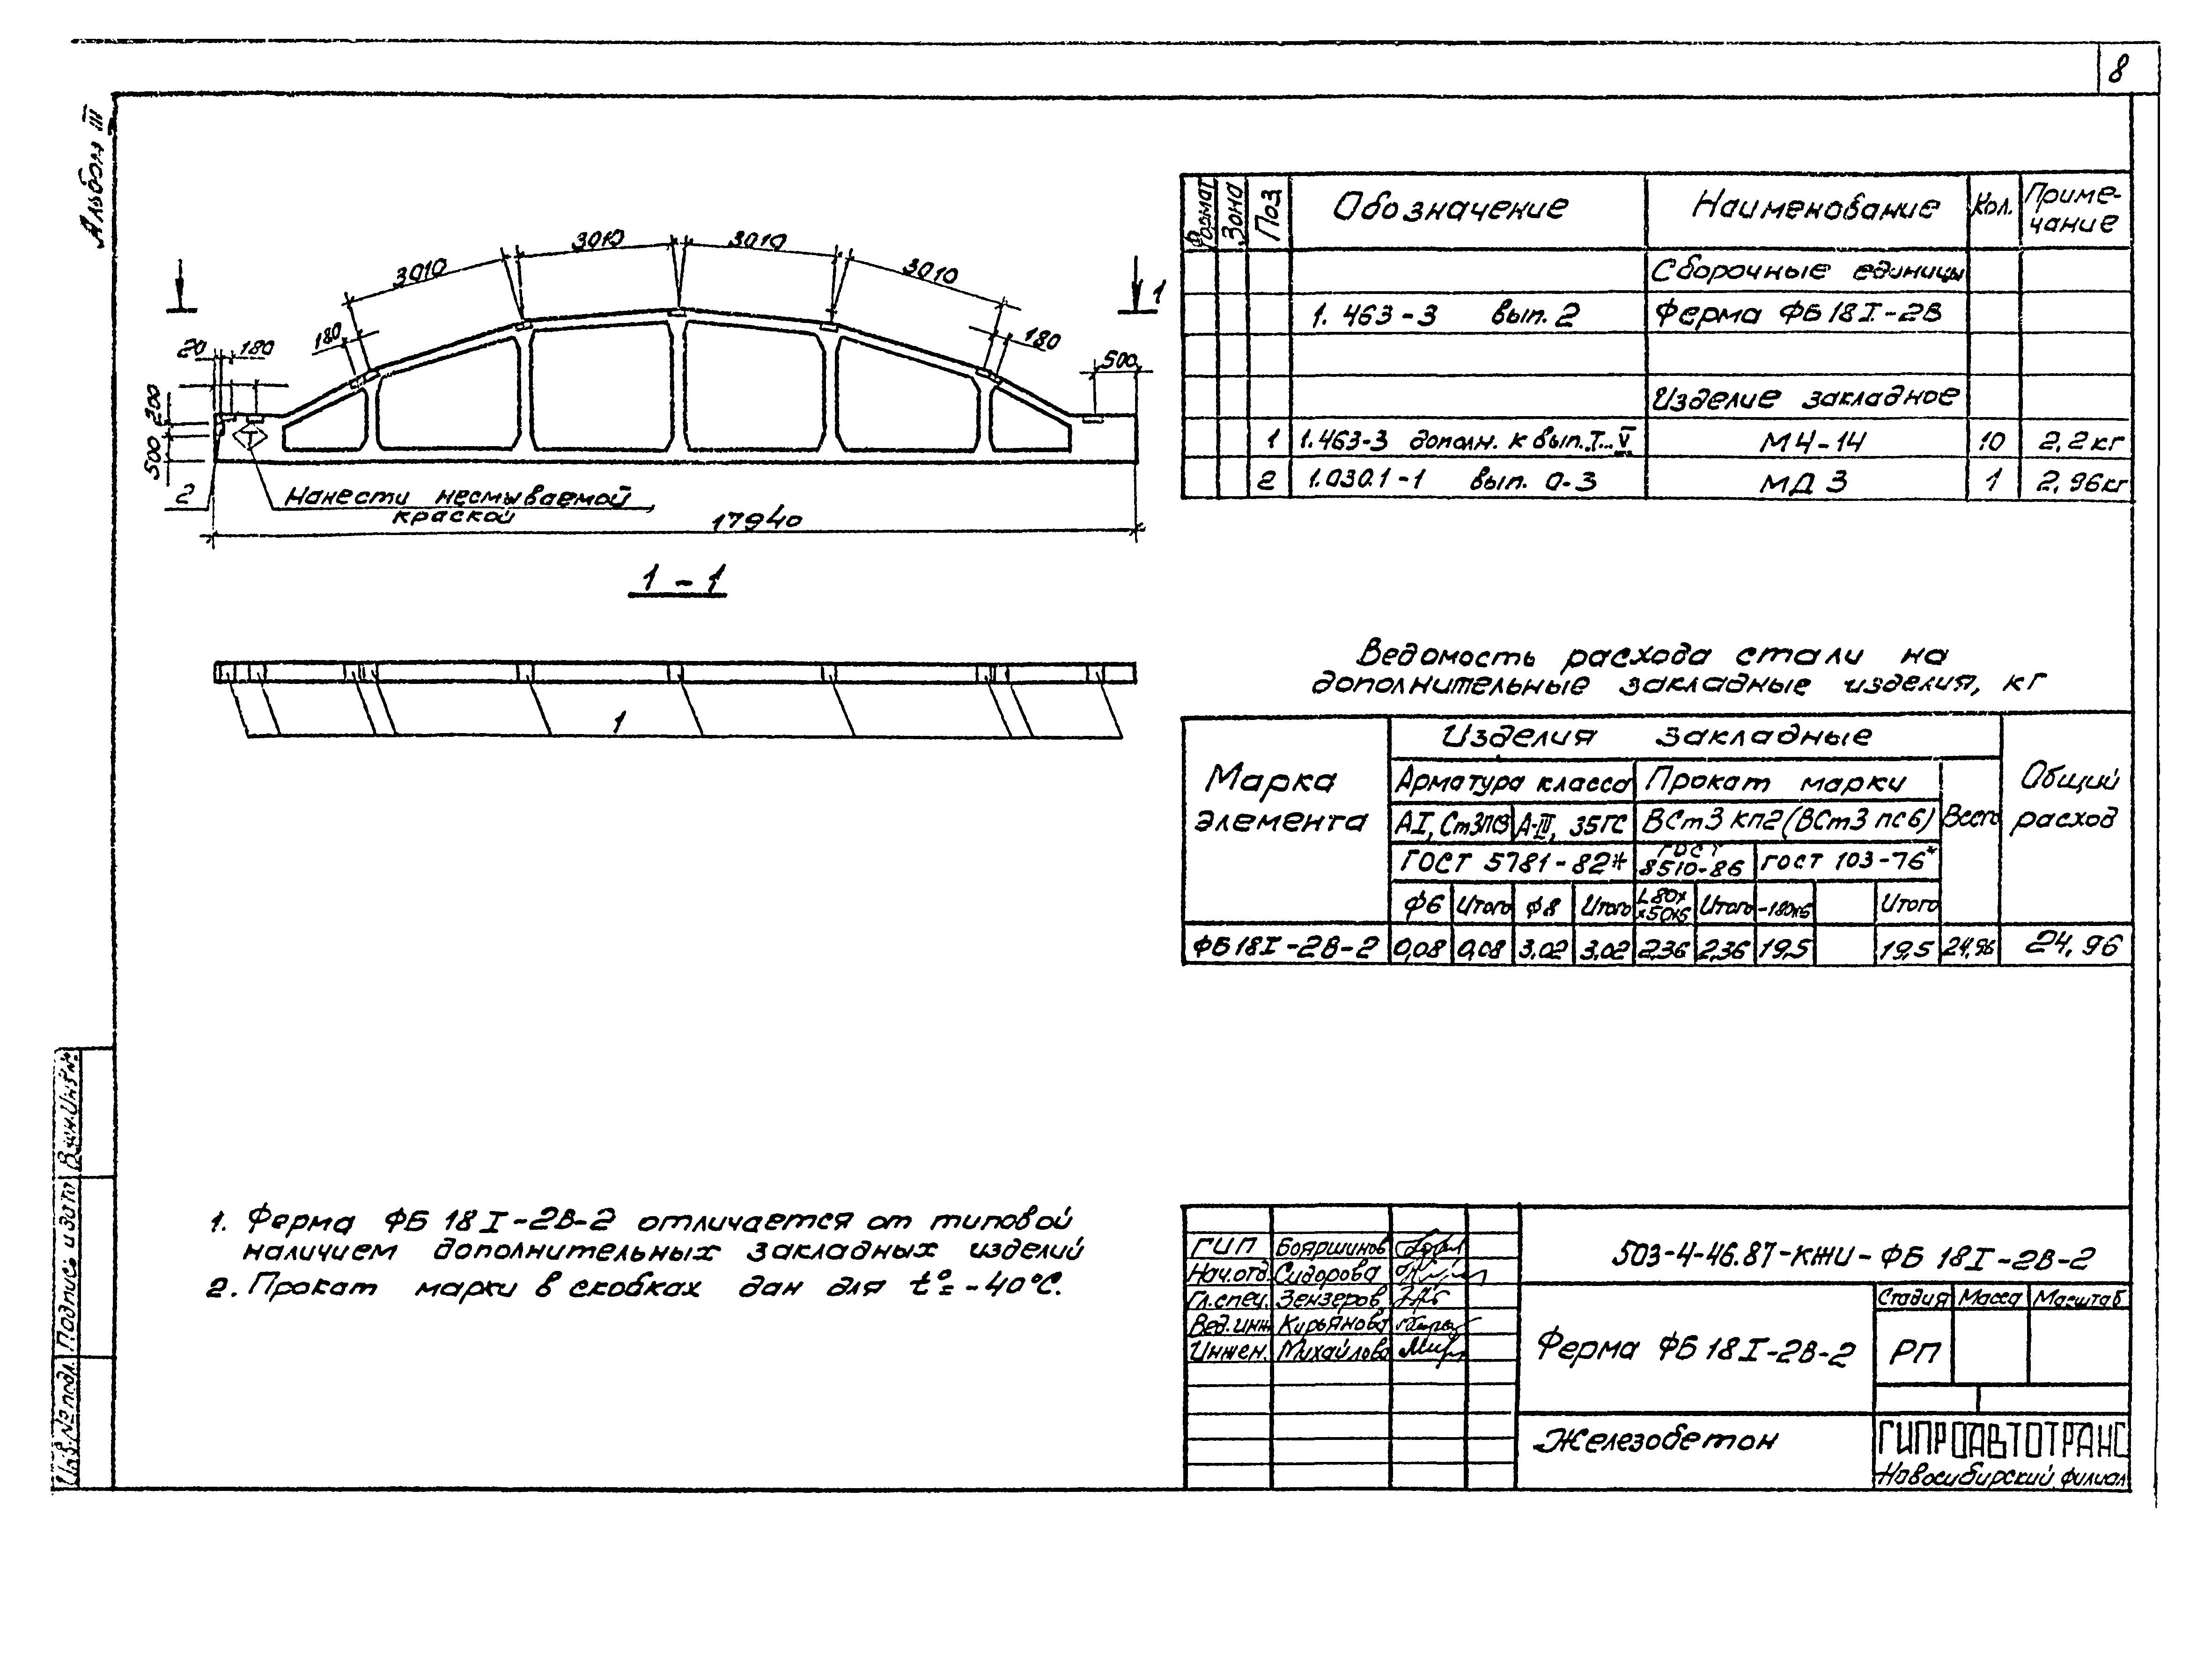 8
Альбом III
3010
3010
3010
3010
180
180
20
180
500
200
500
1
Т
2
Нанести несмываемой
краской
17940
1 - 1
1
Формат
Зона
Поз.
Обозначение
Наименование
Кол.
Приме-
чание
Сборочные единицы
1.463-3 вып. 2
Ферма ФБ 18I-2В
Изделие закладное
1
1.463-3 дополн. к вып. I...V
М4-14
10
2,2кг
2
1.030.1-1 вып. 0-3
МД 3
1
2,96кг
Ведомость расхода стали на
дополнительные закладные изделия, кг
Марка
элемента
Изделия закладные
Общий
расход
Арматура класса
Прокат марки
Всего
АI, Ст3пс3
А-III, 35ГС
ВСт3 кп2 (ВСт3 пс6)
ГОСТ 5781-82*
ГОСТ
8510-86
ГОСТ 103-76*
Ф6
Итого
Ф8
Итого
L80х
х50х6
Итого
-180х6
Итого
ФБ18I-2В-2
0,08
0,08
3,02
3,02
2,36
2,36
19,5
19,5
24,96
24,96
1. Ферма ФБ 18I-2В-2 отличается от типовой
наличием дополнительных закладных изделий
2. Прокат марки в скобках дан для t°= -40°С.
Взам.Инв.№
Подпись и дата
Инв.№ подл.
ГИП
Бояршинов
Нач.отд.
Сидорова
Гл.спец.
Зензеров
Вед.инж
Кирьянова
Инжен.
Михайлова
503-4-46.87-КЖИ-ФБ 18I-2В-2
Ферма ФБ 18I-2В-2
Стадия
Масса
Масштаб
РП
Железобетон
ГИПРОАВТОТРАНС
Новосибирский филиал